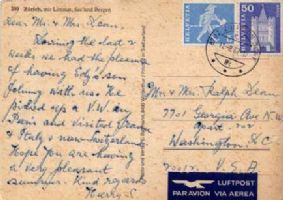 380 Zürich, mit Limmat, See und Bergen
Dear Mr & Mrs Dean,
During the last 2
weeks we had the pleasure
of having Ed, & son
Johnny with us. He
picked up a V.W. in
Paris and visited France
& Italy & now Switzerland
Hope you are having
a very pleasant
summer. Kind regards
HELVETIA
HELVETIA 50
Mr & Mrs Ralph Dean
7701 Georgia Ave N.W
Washington, D.C
U.S.A
LUFTPOST
PAR AVION VIA AEREA